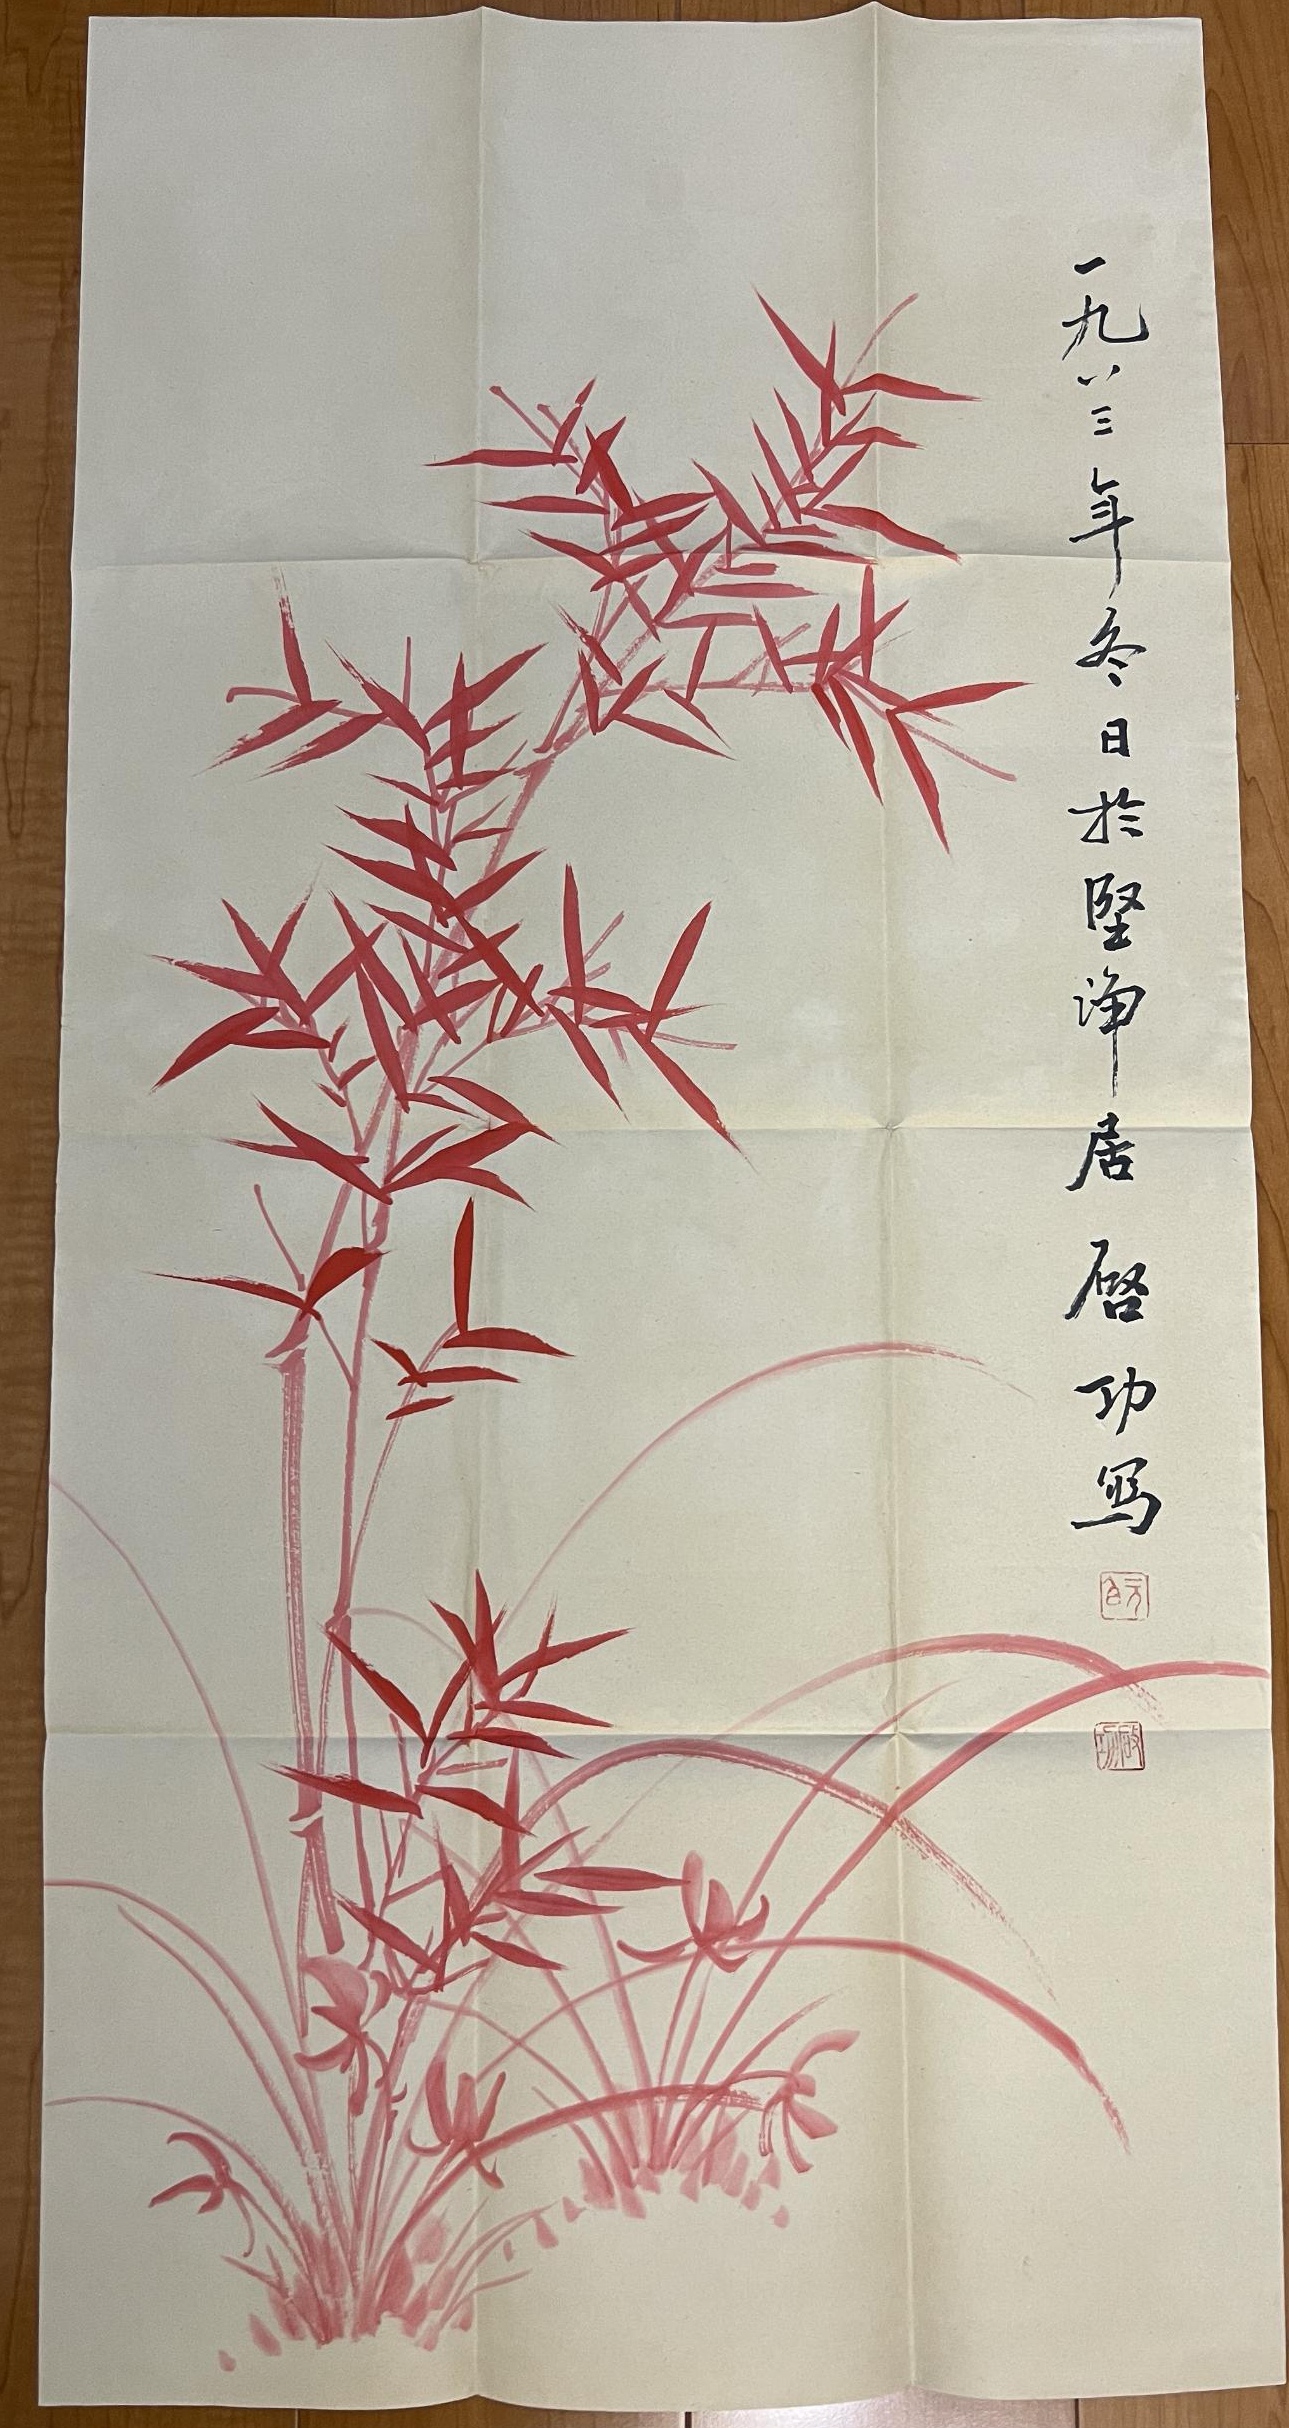 一九八三年冬日於堅净居 啓功写
元白
啟功